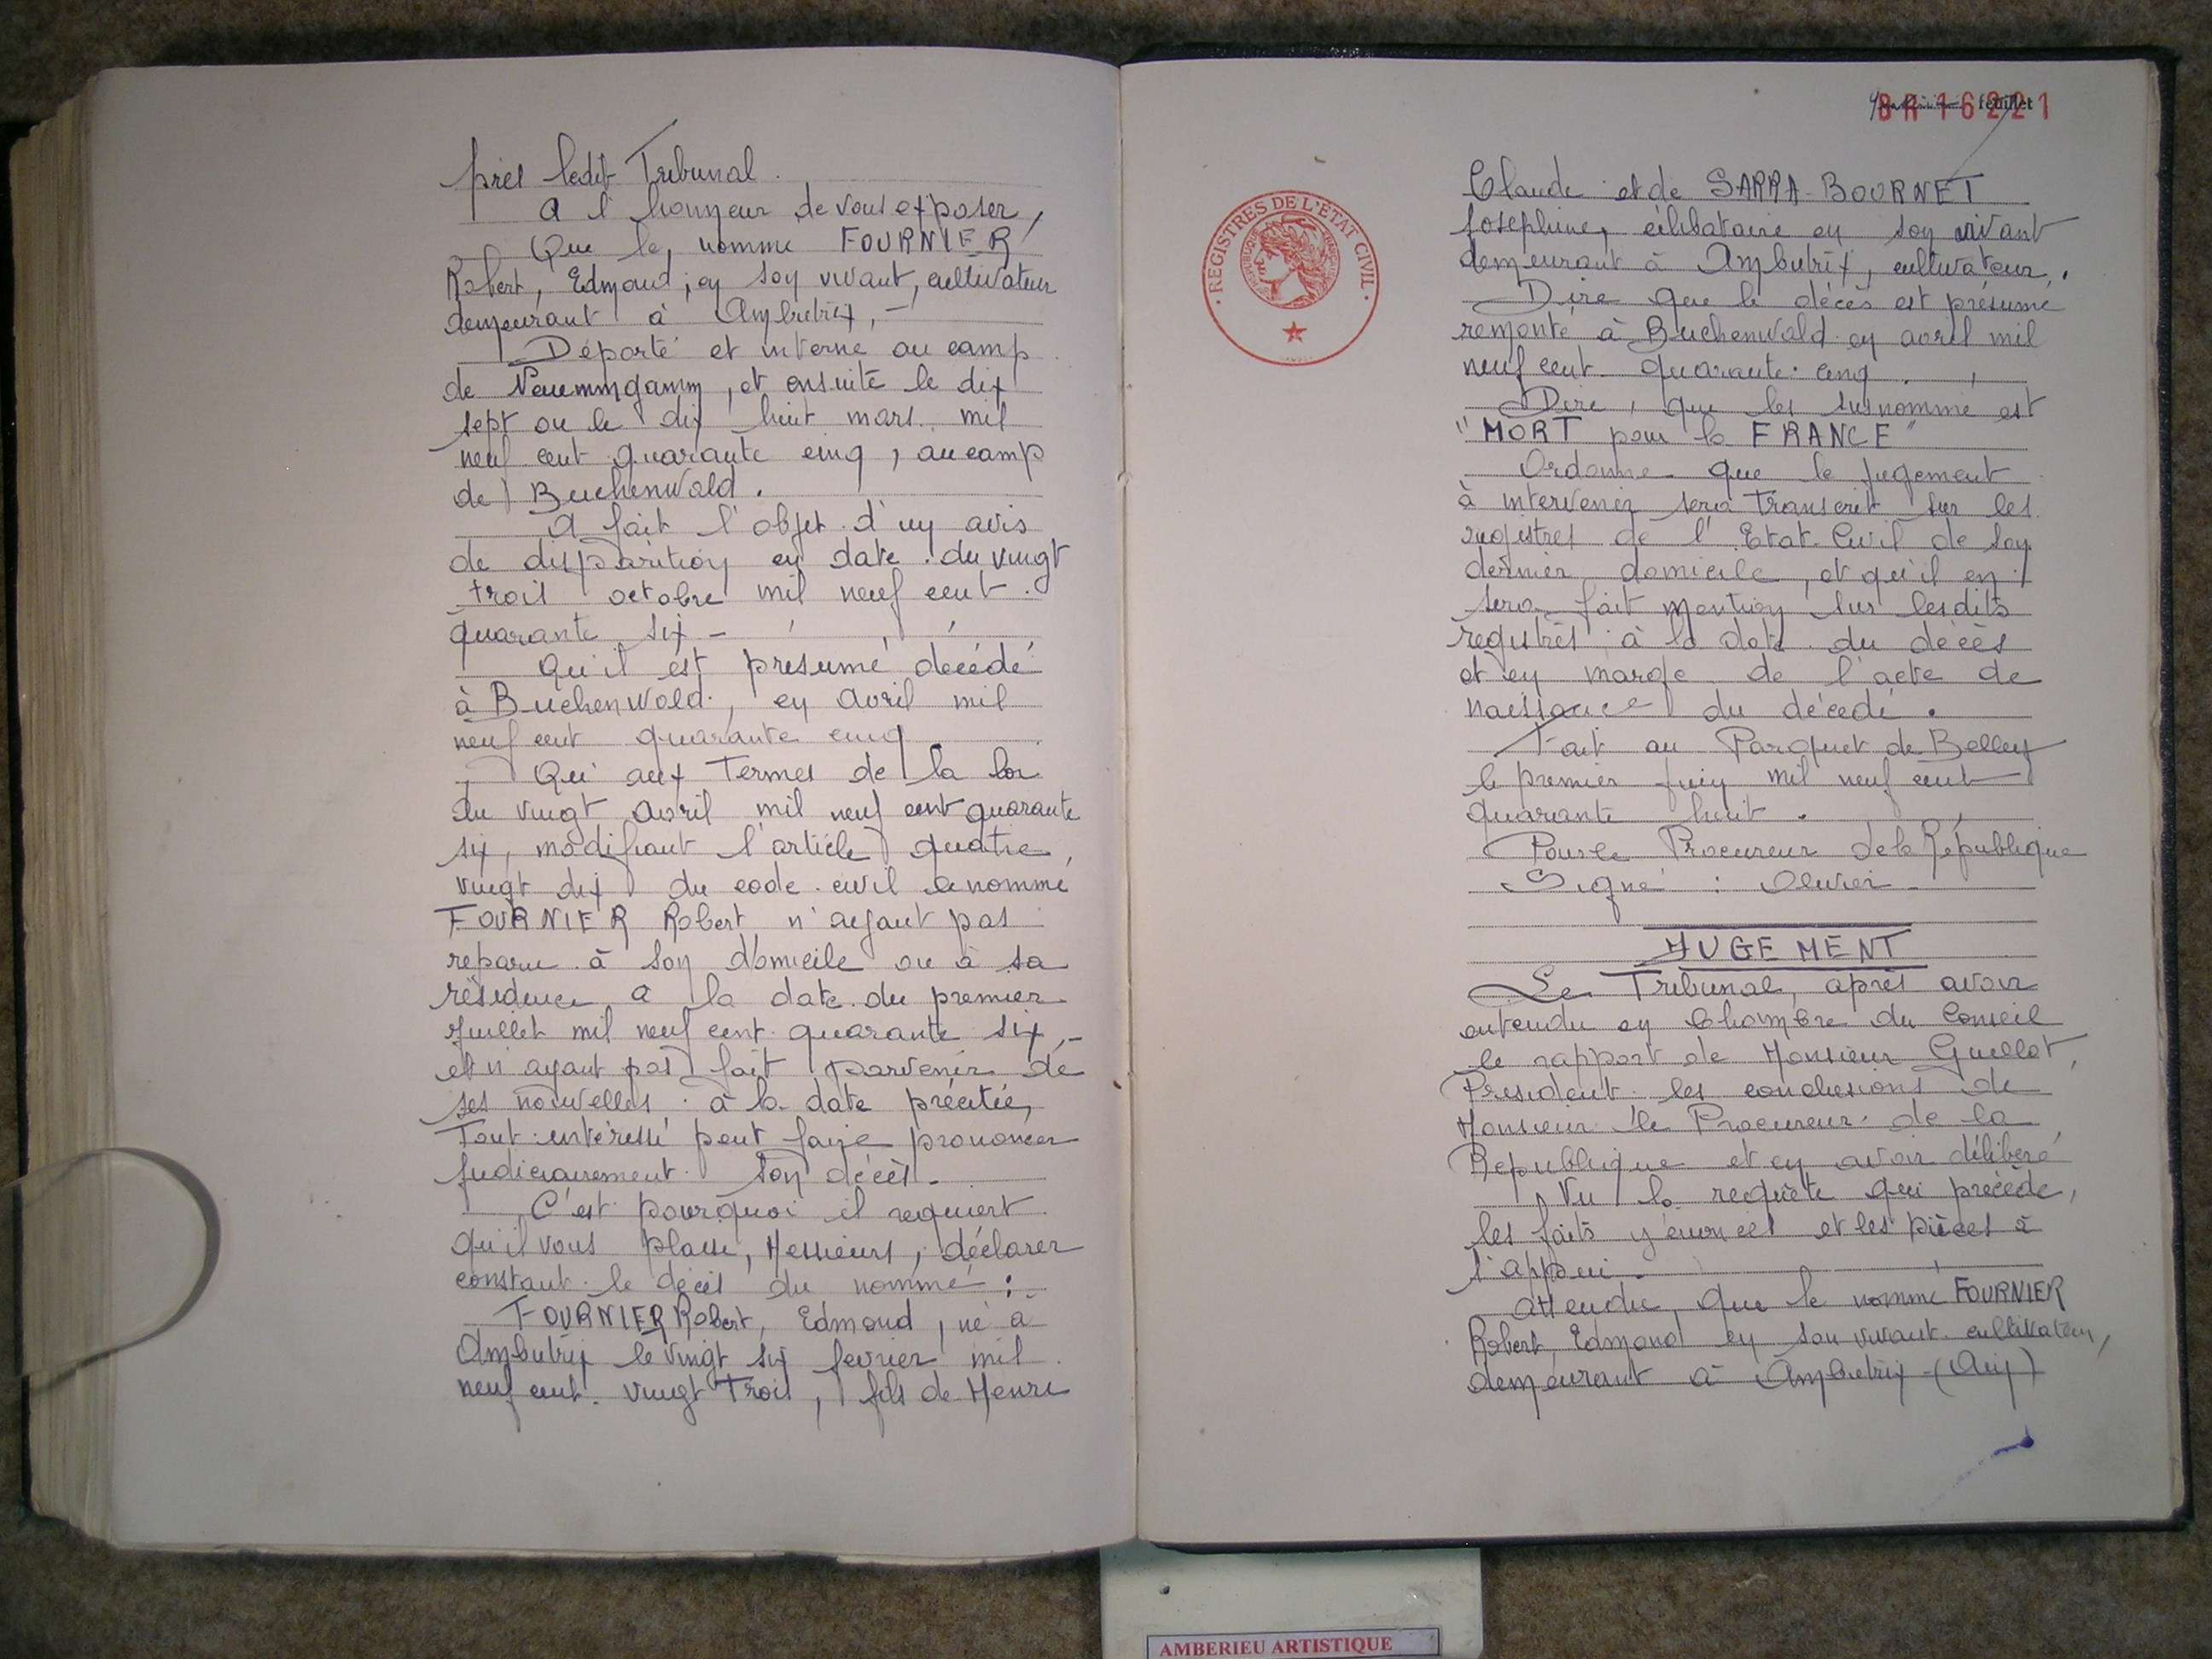 près ledit Tribunal.
A l'honneur de vous exposer,
Que le nommé FOURNIER
Robert, Edmond, en son vivant, cultivateur
demeurant à Ambutrix, -
Déporté et interné au camp
de Neuemmgamm, et ensuite le dix
sept ou le dix huit mars mil
neuf cent quarante cinq, au camp
de Buchenwald.
A fait l'objet d'un avis
de disparition en date du vingt
trois octobre mil neuf cent
quarante six -
Qu'il est présumé décédé
à Buchenwald, en avril mil
neuf cent quarante cinq
Qu'aux termes de la loi
du vingt avril mil neuf cent quarante
six, modifiant l'article quatre
vingt dix du code civil le nommé
FOURNIER Robert n'ayant pas
reparu à son domicile ou à sa
résidence à la date du premier
juillet mil neuf cent quarante six, -
et n'ayant pas fait parvenir de
ses nouvelles à la date précitée,
Tout intéressé peut faire prononcer
judiciairement son décès.
C'est pourquoi il requiert
qu'il vous plaise, Messieurs, déclarer
constant le décès du nommé :
FOURNIER Robert, Edmond, né à
Ambutrix le vingt six février mil
neuf cent vingt Trois, fils de Henri
feuillet
BR 16221
Claude et de SARRA-BOURNET
Joséphine, célibataire en son vivant
demeurant à Ambutrix, cultivateur.
Dire que le décès est présumé
remonté à Buchenwald en avril mil
neuf cent quarante cinq.
Dire, que les susnommé est
"MORT pour la FRANCE"
Ordonne que le jugement
à intervenir sera transcrit sur les
registres de l'Etat-Civil de son
dernier domicile, et qu'il en
sera fait mention sur lesdits
registres à la date du décès
et en marge de l'acte de
naissance du décédé.
Fait au Parquet de Belley
le premier juin mil neuf cent
quarante huit.
Pour le Procureur de la République
Signé : Olivier
JUGEMENT
Le Tribunal, après avoir
entendu en Chambre du Conseil
le rapport de Monsieur Guillot,
Président les conclusions de
Monsieur le Procureur de la
République et en avoir délibéré
Vu la requête qui précède,
les faits y énoncés et les pièces à
l'appui.
Attendu que le nommé FOURNIER
Robert, Edmond en son vivant cultivateur,
demeurant à Ambutrix (Ain)
REGISTRES DE L'ÉTAT CIVIL
AMBERIEU ARTISTIQUE